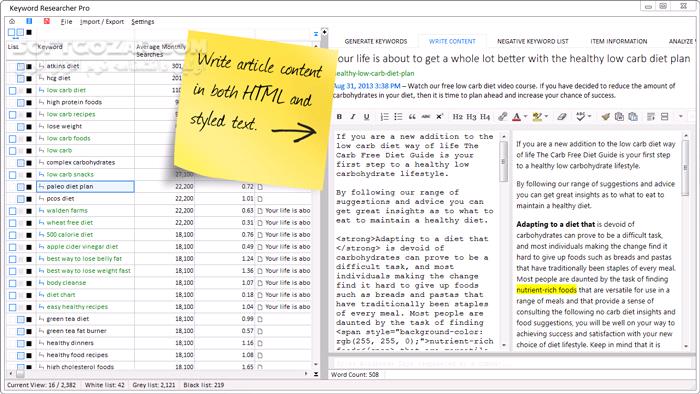 Keyword Researcher Pro
File Import / Export Settings
GENERATE KEYWORDS WRITE CONTENT NEGATIVE KEYWORD LIST ITEM INFORMATION ANALYZE
List Keyword Average Monthly Searches
atkins diet 301
hcg diet 201
low carb diet 110
high protein foods
low carb recipes
lose weight
low carb foods
low carb
complex carbohydrates
low carb snacks 27,100
paleo diet plan 22,200 0.72
pcos diet 22,200 1.01
walden farms 22,200 0.63 Your life is abo
wheat free diet 22,200 0.31 Your life is abo
500 calorie diet 18,100 0.76 Your life is abo
apple cider vinegar diet 18,100 0.49 Your life is abo
best way to lose belly fat 18,100 1.24 Your life is abo
best way to lose weight fast 18,100 1.36 Your life is abo
body cleanse 18,100 1.07 Your life is abo
diet chart 18,100 0.18 Your life is abo
easy healthy recipes 18,100 1.04 Your life is abo
green tea diet 18,100 0.99
green tea fat burner 18,100 0.57
healthy dinners 18,100 1.16
healthy food recipes 18,100 1.08
high cholesterol foods 18,100 1.65
Current View: 16 / 2,382 White list: 42 Grey list: 2,121 Black list: 219
Write article content
in both HTML and
styled text.
your life is about to get a whole lot better with the healthy low carb diet plan
healthy-low-carb-diet-plan
Aug 31, 2013 3:38 PM – Watch our free low carb diet video course. If you have decided to reduce the amount of
carbohydrates in your diet, then it is time to plan ahead and increase your chance of success.
B I U ABC H2 H3 H4
If you are a new addition to the
low carb diet way of life The
Carb Free Diet Guide is your first
step to a healthy low
carbohydrate lifestyle.
By following our range of
suggestions and advice you can
get great insights as to what to
eat to maintain a healthy diet.
<strong>Adapting to a diet that
</strong> is devoid of
carbohydrates can prove to be a
difficult task, and most
individuals making the change
find it hard to give up foods
such as breads and pastas that
have traditionally been staples
of every meal. Most people are
daunted by the task of finding
<span style="background-color:
rgb(255, 255, 0);">nutrient-rich
If you are a new addition to the low carb diet way
of life The Carb Free Diet Guide is your first step
to a healthy low carbohydrate lifestyle.
By following our range of suggestions and advice
you can get great insights as to what to eat to
maintain a healthy diet.
Adapting to a diet that is devoid of
carbohydrates can prove to be a difficult task,
and most individuals making the change find it
hard to give up foods such as breads and pastas
that have traditionally been staples of every meal.
Most people are daunted by the task of finding
nutrient-rich foods that are versatile for use in a
range of meals and that provide a sense of
consulting the following no carb diet insights and
food suggestions, you will be well on your way to
achieving success and satisfaction with your new
choice of diet lifestyle. Keep in mind that it is
Word Count: 508